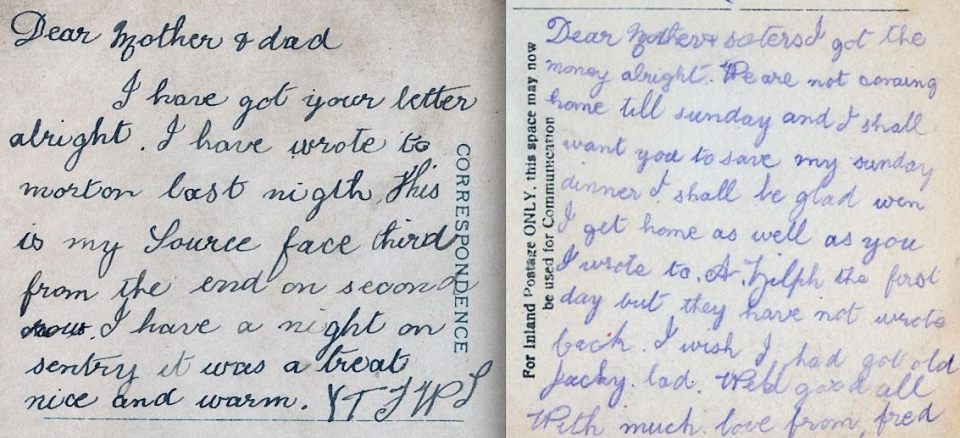 Dear Mother & dad
I have got your letter
alright. I have wrote to
morton last nigth, This
is my Source face third
from the end on second
rous. I have a night on
sentry it was a treat
nice and warm.
CORRESPONDENCE
For Inland Postage ONLY, this space may now
be used for Communication
Dear Mother & sisters I got the
money alright. We are not coming
home till sunday and I shall
want you to save my sunday
dinner I shall be glad wen
I get home as well as you
I wrote to. A. the first
day but they have not wrote
back. I wish I had got old
Jacky. lad. Well good all
With much love from, fred